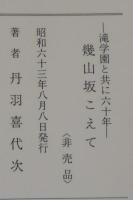 ―滝学園と共に六十年―
幾山坂こえて
〈非売品〉
昭和六十三年八月八日発行
著者 丹羽喜代次